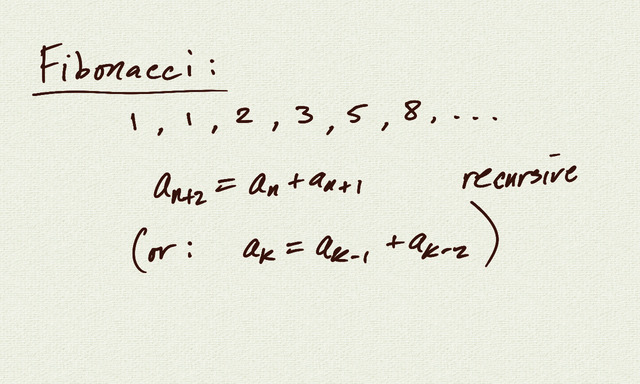 Fibonacci:
1, 1, 2, 3, 5, 8, ...
aₙ₊₂ = aₙ + aₙ₊₁ recursive
(or: aₖ = aₖ₋₁ + aₖ₋₂)